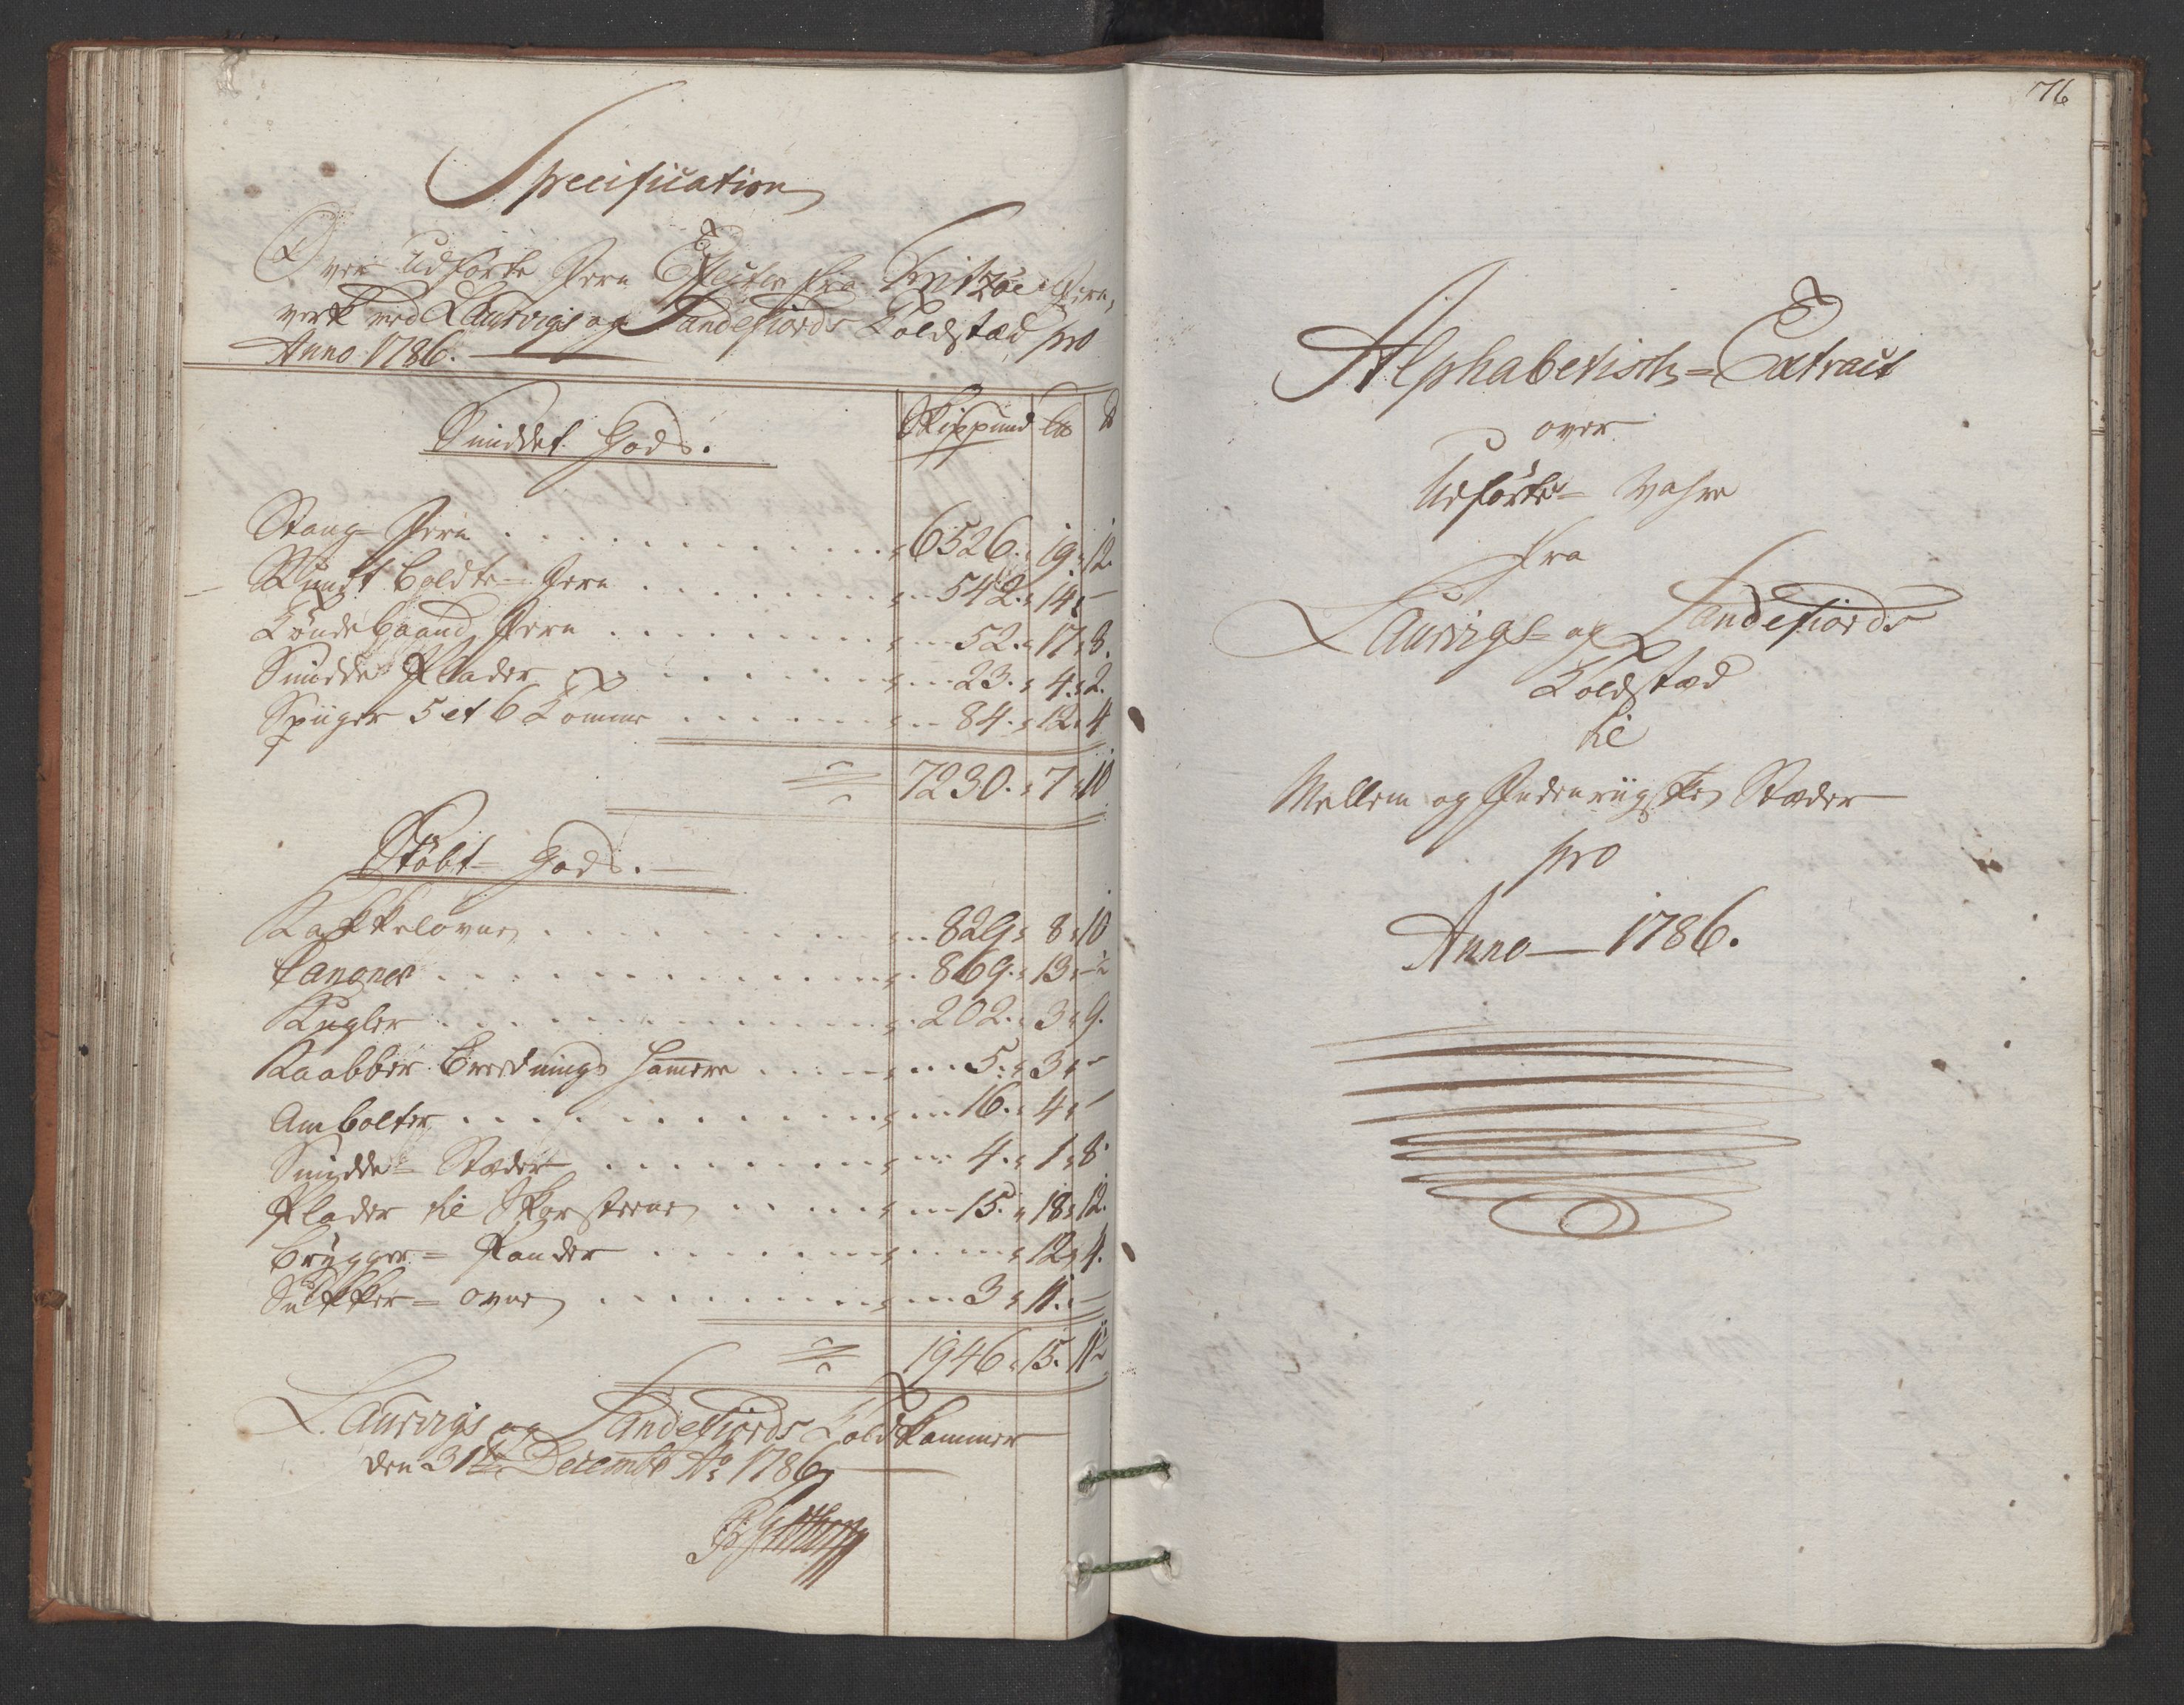 Specification
Over Udførte Jern Effecter fra Fritzøe Jern,
verk ved Laurvigs og Sandefiords Toldstæd pro
Anno 1786.
Smiddet Gods. Skippund L℔ ℔
Stang Jern 6526. 19. 12.
Rundt Boldte Jern 542. 14. —
Töndebaand Jern 52. 17. 8.
Smidde Plader 23. 4. 2.
Spiiger 5 et 6 Tomme 84. 12. 4
7230. 7. 10
Støbt Gods.
Kakkelovne 829. 8. 10
Canoner 869. 13. — ½
Kugler 202. 3. 9.
Kaabber Breednings Hamere 5. 3. —
Ambolter 16. 4. —
Smidde Stæder 4. 1. 8.
Plader til Skorsteene 15. 18. 12.
Brygger = Pander 12. 4.
Sukker = ovne 3. 11. —
1946. 15. 11½
Laurvigs og Sandefiords Toldkammer
den 31te Decembr Ao 1786
76
Alphabetisch = Extract
over
Udførte = Vahre
fra
Laurvigs = og Sandefiords
Toldstæd
til
Mellem og Indenriigske Stæder
pro
Anno — 1786.